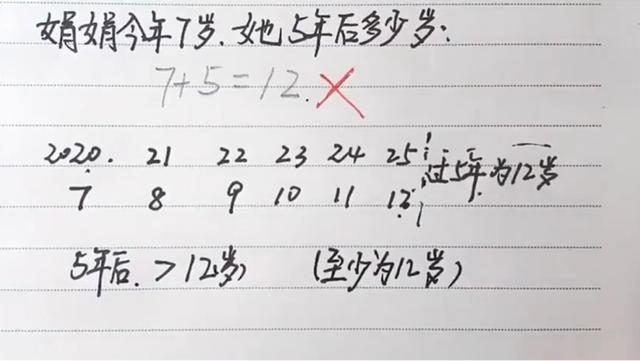 娟娟今年7岁.她5年后多少岁:
7+5=12.
2020. 21 22 23 24 25 过5年为12岁
7 8 9 10 11 12
5年后.>12岁 (至少为12岁)